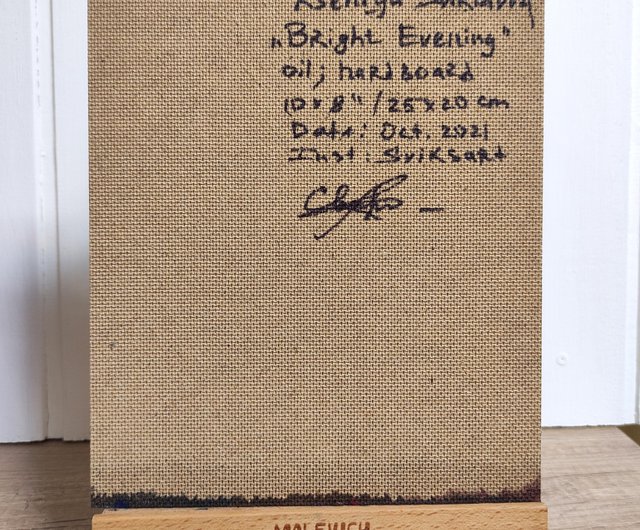 „Bright Evening"
oil; hardboard
10 x 8" / 25 x 20 cm
Date: Oct. 2021
Inst: Sviksart